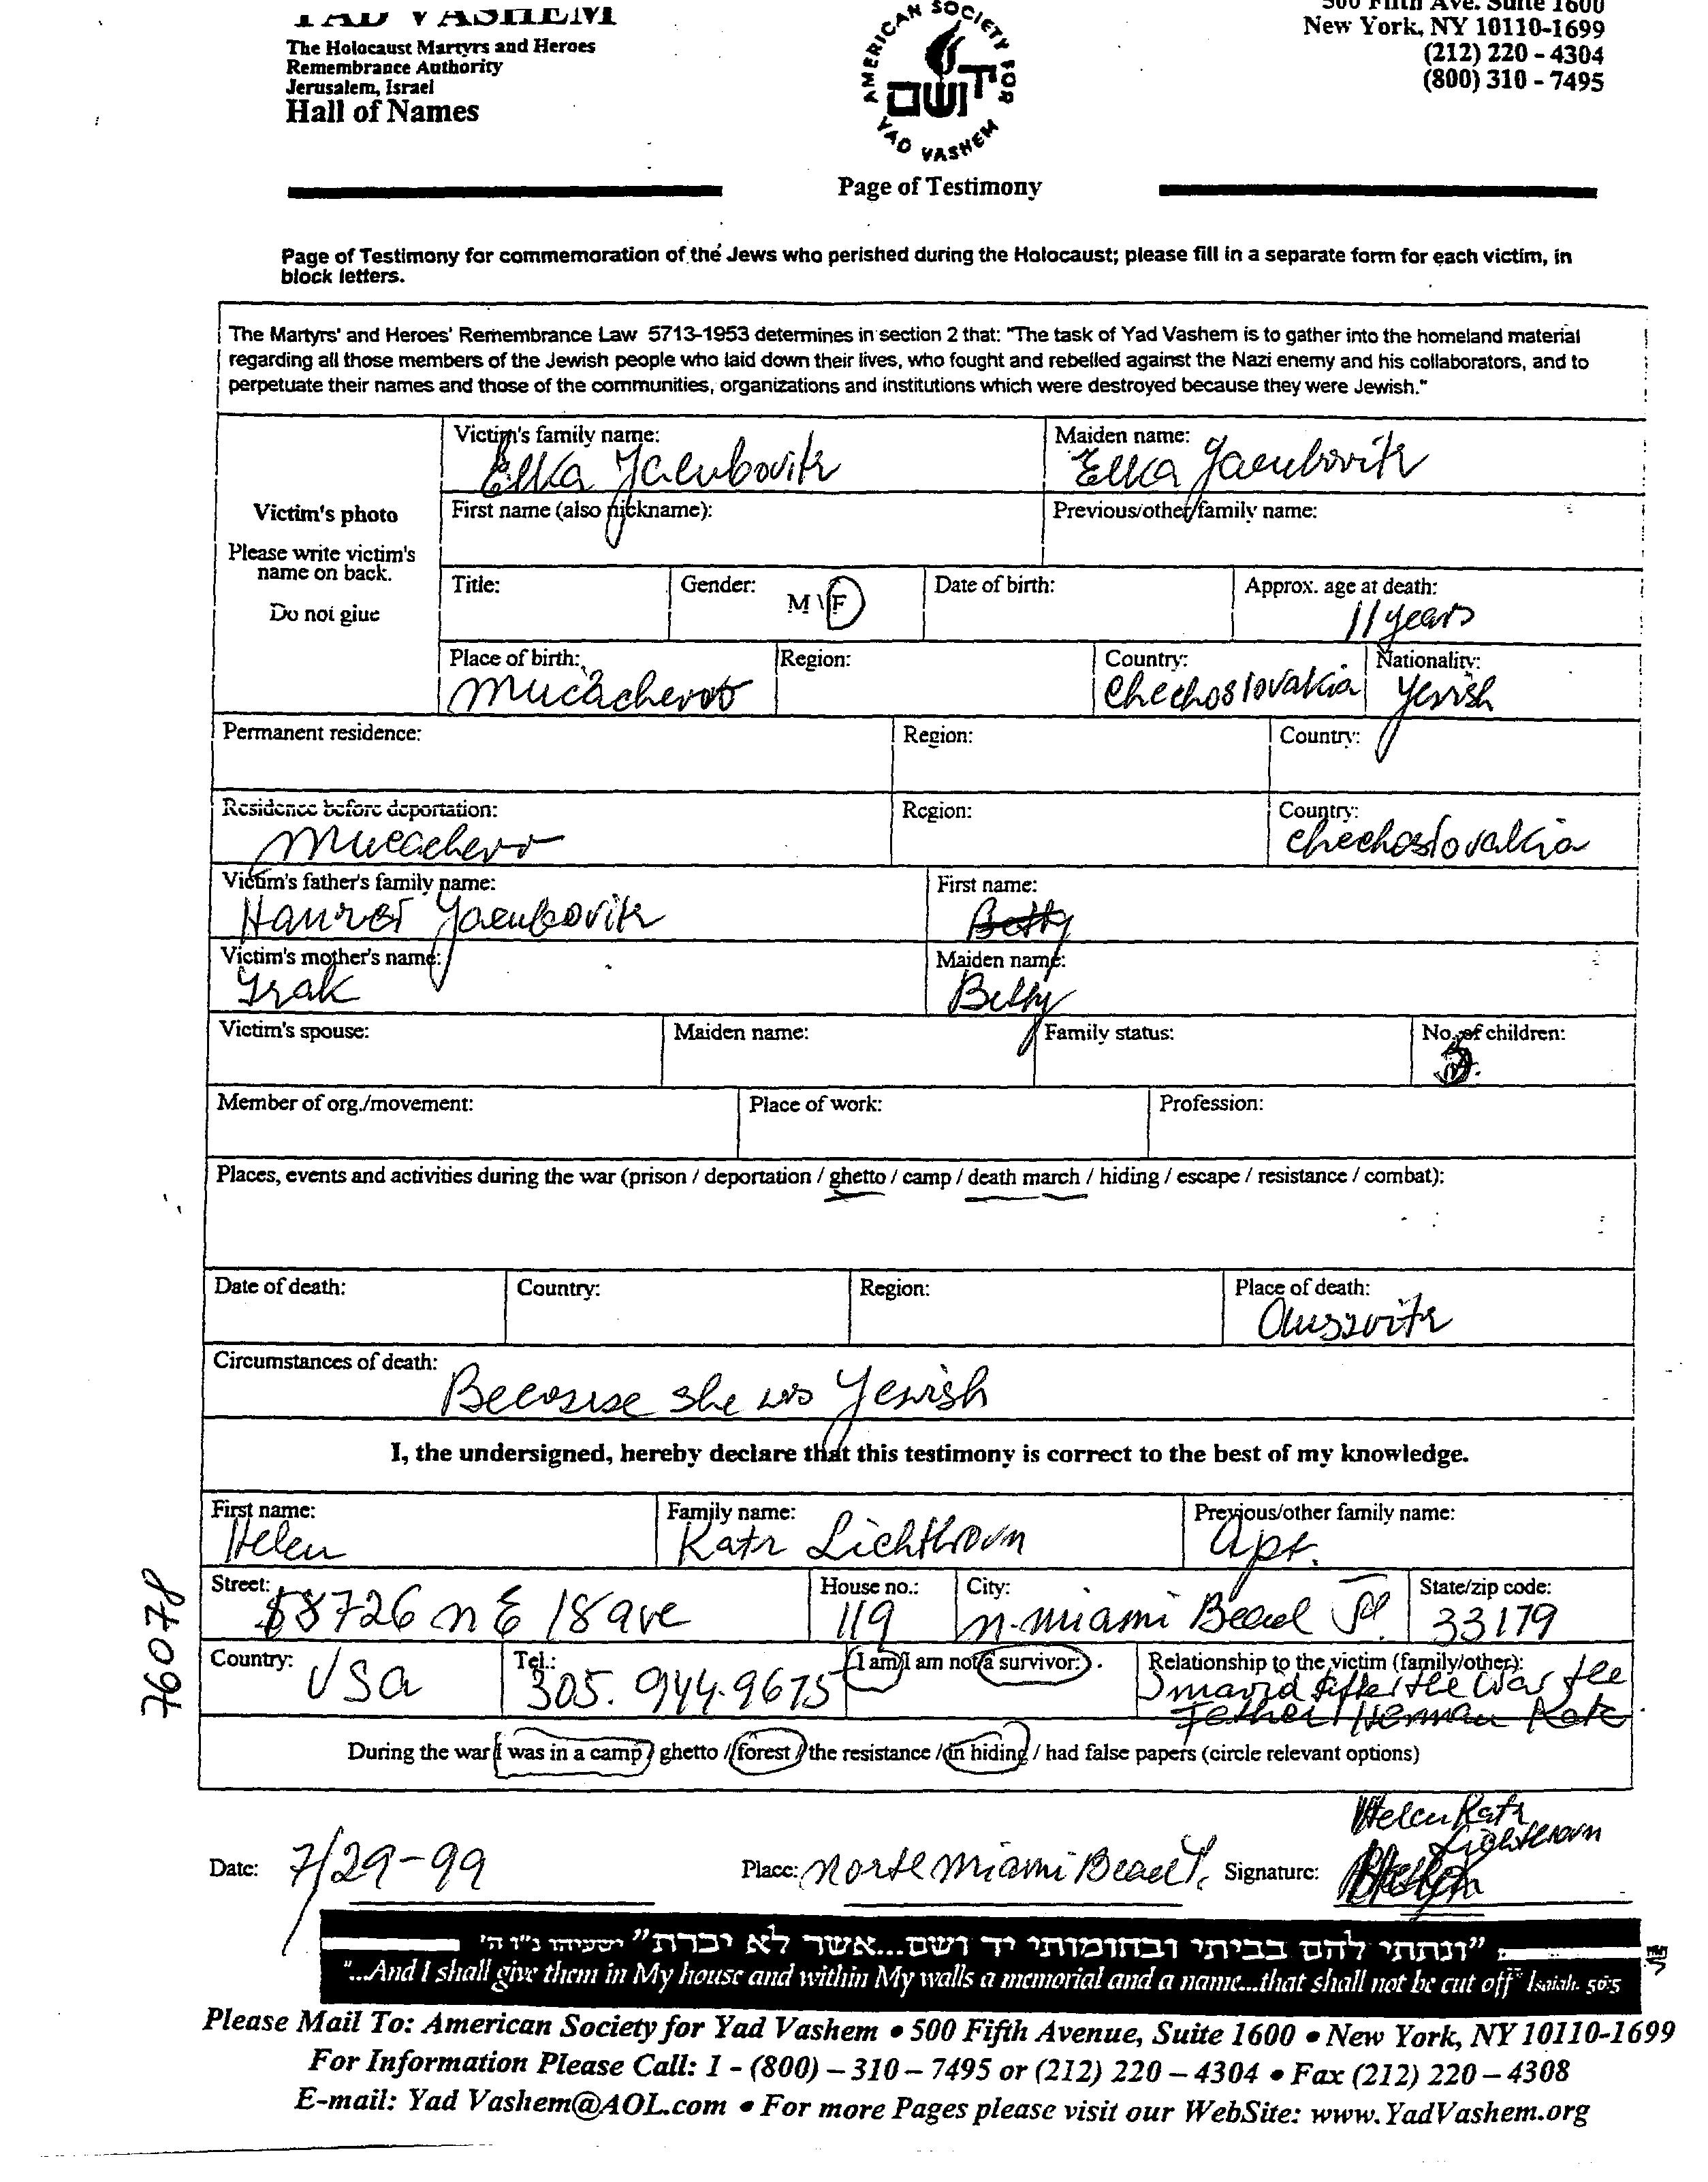 YAD VASHEM
The Holocaust Martyrs and Heroes
Remembrance Authority
Jerusalem, Israel
Hall of Names
AMERICAN SOCIETY FOR
יד ושם
YAD VASHEM
Page of Testimony
500 Fifth Ave. Suite 1600
New York, NY 10110-1699
(212) 220 - 4304
(800) 310 - 7495
Page of Testimony for commemoration of the Jews who perished during the Holocaust; please fill in a separate form for each victim, in
block letters.
The Martyrs' and Heroes' Remembrance Law 5713-1953 determines in section 2 that: "The task of Yad Vashem is to gather into the homeland material
regarding all those members of the Jewish people who laid down their lives, who fought and rebelled against the Nazi enemy and his collaborators, and to
perpetuate their names and those of the communities, organizations and institutions which were destroyed because they were Jewish."
Victim's photo
Please write victim's
name on back.
Do not glue
Victim's family name: Maiden name:
Elka Yacubovitz Elka Yacubovitz
First name (also nickname): Previous/other family name:
Title: Gender: M\F Date of birth: Approx. age at death:
11 years
Place of birth: Region: Country: Nationality:
Mucachevo Chechoslovakia Yewish
Permanent residence: Region: Country:
Residence before deportation: Region: Country:
Mucachevo Chechoslovakia
Victim's father's family name: First name:
Yacubovitz Betty
Victim's mother's name: Maiden name:
Betty
Victim's spouse: Maiden name: Family status: No. of children:
Member of org./movement: Place of work: Profession:
Places, events and activities during the war (prison / deportation / ghetto / camp / death march / hiding / escape / resistance / combat):
Date of death: Country: Region: Place of death:
Auszvitz
Circumstances of death:
Becouse she was Yewish
I, the undersigned, hereby declare that this testimony is correct to the best of my knowledge.
First name: Family name: Previous/other family name:
Helen Katz Lichtkron Apt.
Street: House no.: City: State/zip code:
18726 N E 18 ave 119 N. Miami Beach Fl. 33179
Country: Tel.: I am/I am not a survivor. Relationship to the victim (family/other):
USA 305. 944.9675 I marid after the war the
Father Herman Katz
During the war I was in a camp / ghetto / forest / the resistance / in hiding / had false papers (circle relevant options)
76078
Helen Katz
Lichtkron
Date: 7/29-99 Place: North Miami Beach Signature:
"ונתתי להם בביתי ובחומותי יד ושם...אשר לא יכרת" ישעיהו נ"ו ה'
"...And I shall give them in My house and within My walls a memorial and a name...that shall not be cut off" Isaiah. 56:5
Please Mail To: American Society for Yad Vashem • 500 Fifth Avenue, Suite 1600 • New York, NY 10110-1699
For Information Please Call: 1 - (800) – 310 – 7495 or (212) 220 – 4304 • Fax (212) 220 – 4308
E-mail: Yad Vashem@AOL.com • For more Pages please visit our WebSite: www.YadVashem.org